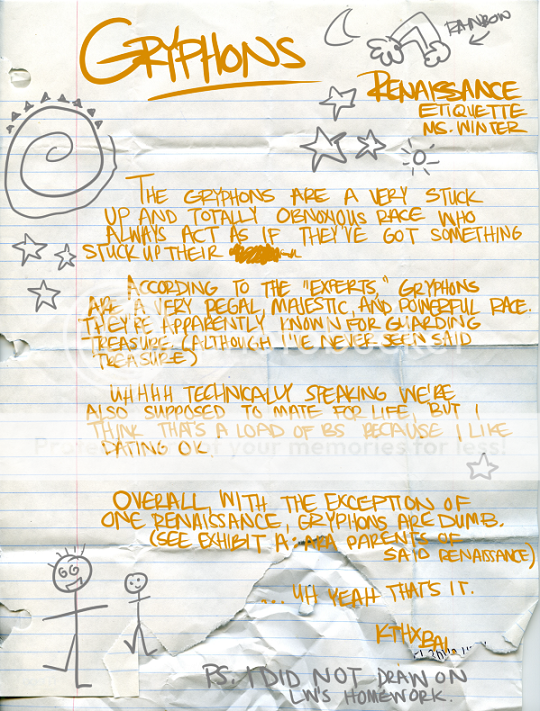 GRYPHONS
RAINBOW
RENAISSANCE
ETIQUETTE
MS. WINTER
THE GRYPHONS ARE A VERY STUCK
UP AND TOTALLY OBNOXIOUS RACE WHO
ALWAYS ACT AS IF THEY'VE GOT SOMETHING
STUCK UP THEIR
ACCORDING TO THE "EXPERTS," GRYPHONS
ARE A VERY REGAL, MAJESTIC, AND POWERFUL RACE.
THEY'RE APPARENTLY KNOWN FOR GUARDING
TREASURE. (ALTHOUGH I'VE NEVER SEEN SAID
TREASURE)
UHHHH TECHNICALLY SPEAKING WE'RE
ALSO SUPPOSED TO MATE FOR LIFE, BUT I
THINK THAT'S A LOAD OF BS BECAUSE I LIKE
DATING OK.
OVERALL, WITH THE EXCEPTION OF
ONE RENAISSANCE, GRYPHONS ARE DUMB.
(SEE EXHIBIT A: AKA PARENTS OF
SAID RENAISSANCE)
... UH YEAH THAT'S IT.
KTHXBAI
PS. I DID NOT DRAW ON
LIN'S HOMEWORK.